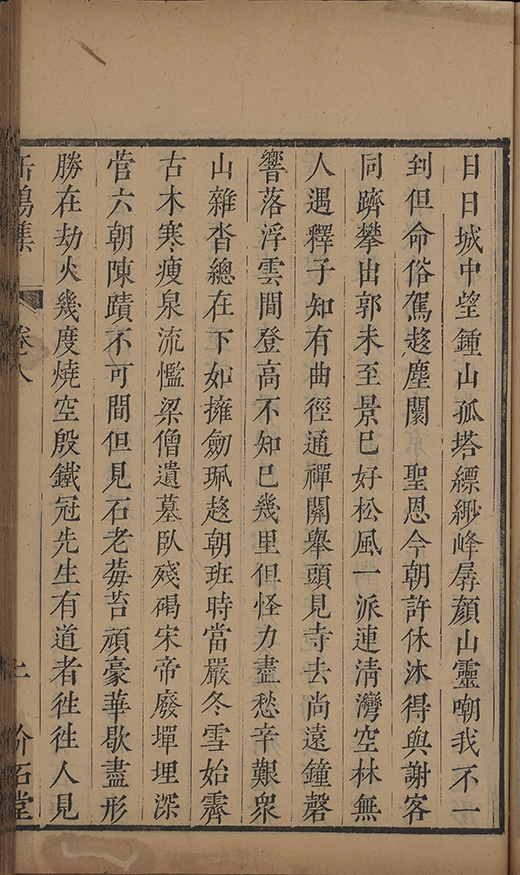 日日城中望鍾山孤塔縹緲峰孱顔山靈嘲我不一
到但命俗駕趍塵闤　聖恩今朝許休沐得與謝客
同躋攀出郭未至景已好松風一派連清灣空林無
人遇釋子知有曲徑通禪關舉頭見寺去尚遠鐘磬
響落浮雲間登高不知已幾里但怪力盡愁辛艱衆
山雜沓總在下如擁劒珮趍朝班時當嚴冬雪始霽
古木寒瘦泉流慳梁僧遺墓臥殘碣宋帝廢墠埋深
菅六朝陳蹟不可間但見石老莓苔頑豪華歇盡形
勝在劫火幾度燒空殷鐵冠先生有道者徃徃人見
缶鳴集
卷八
二
竹石堂